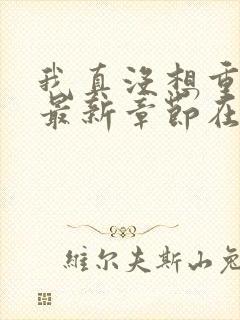 我真没想重
最新章节在
维尔夫斯山兔